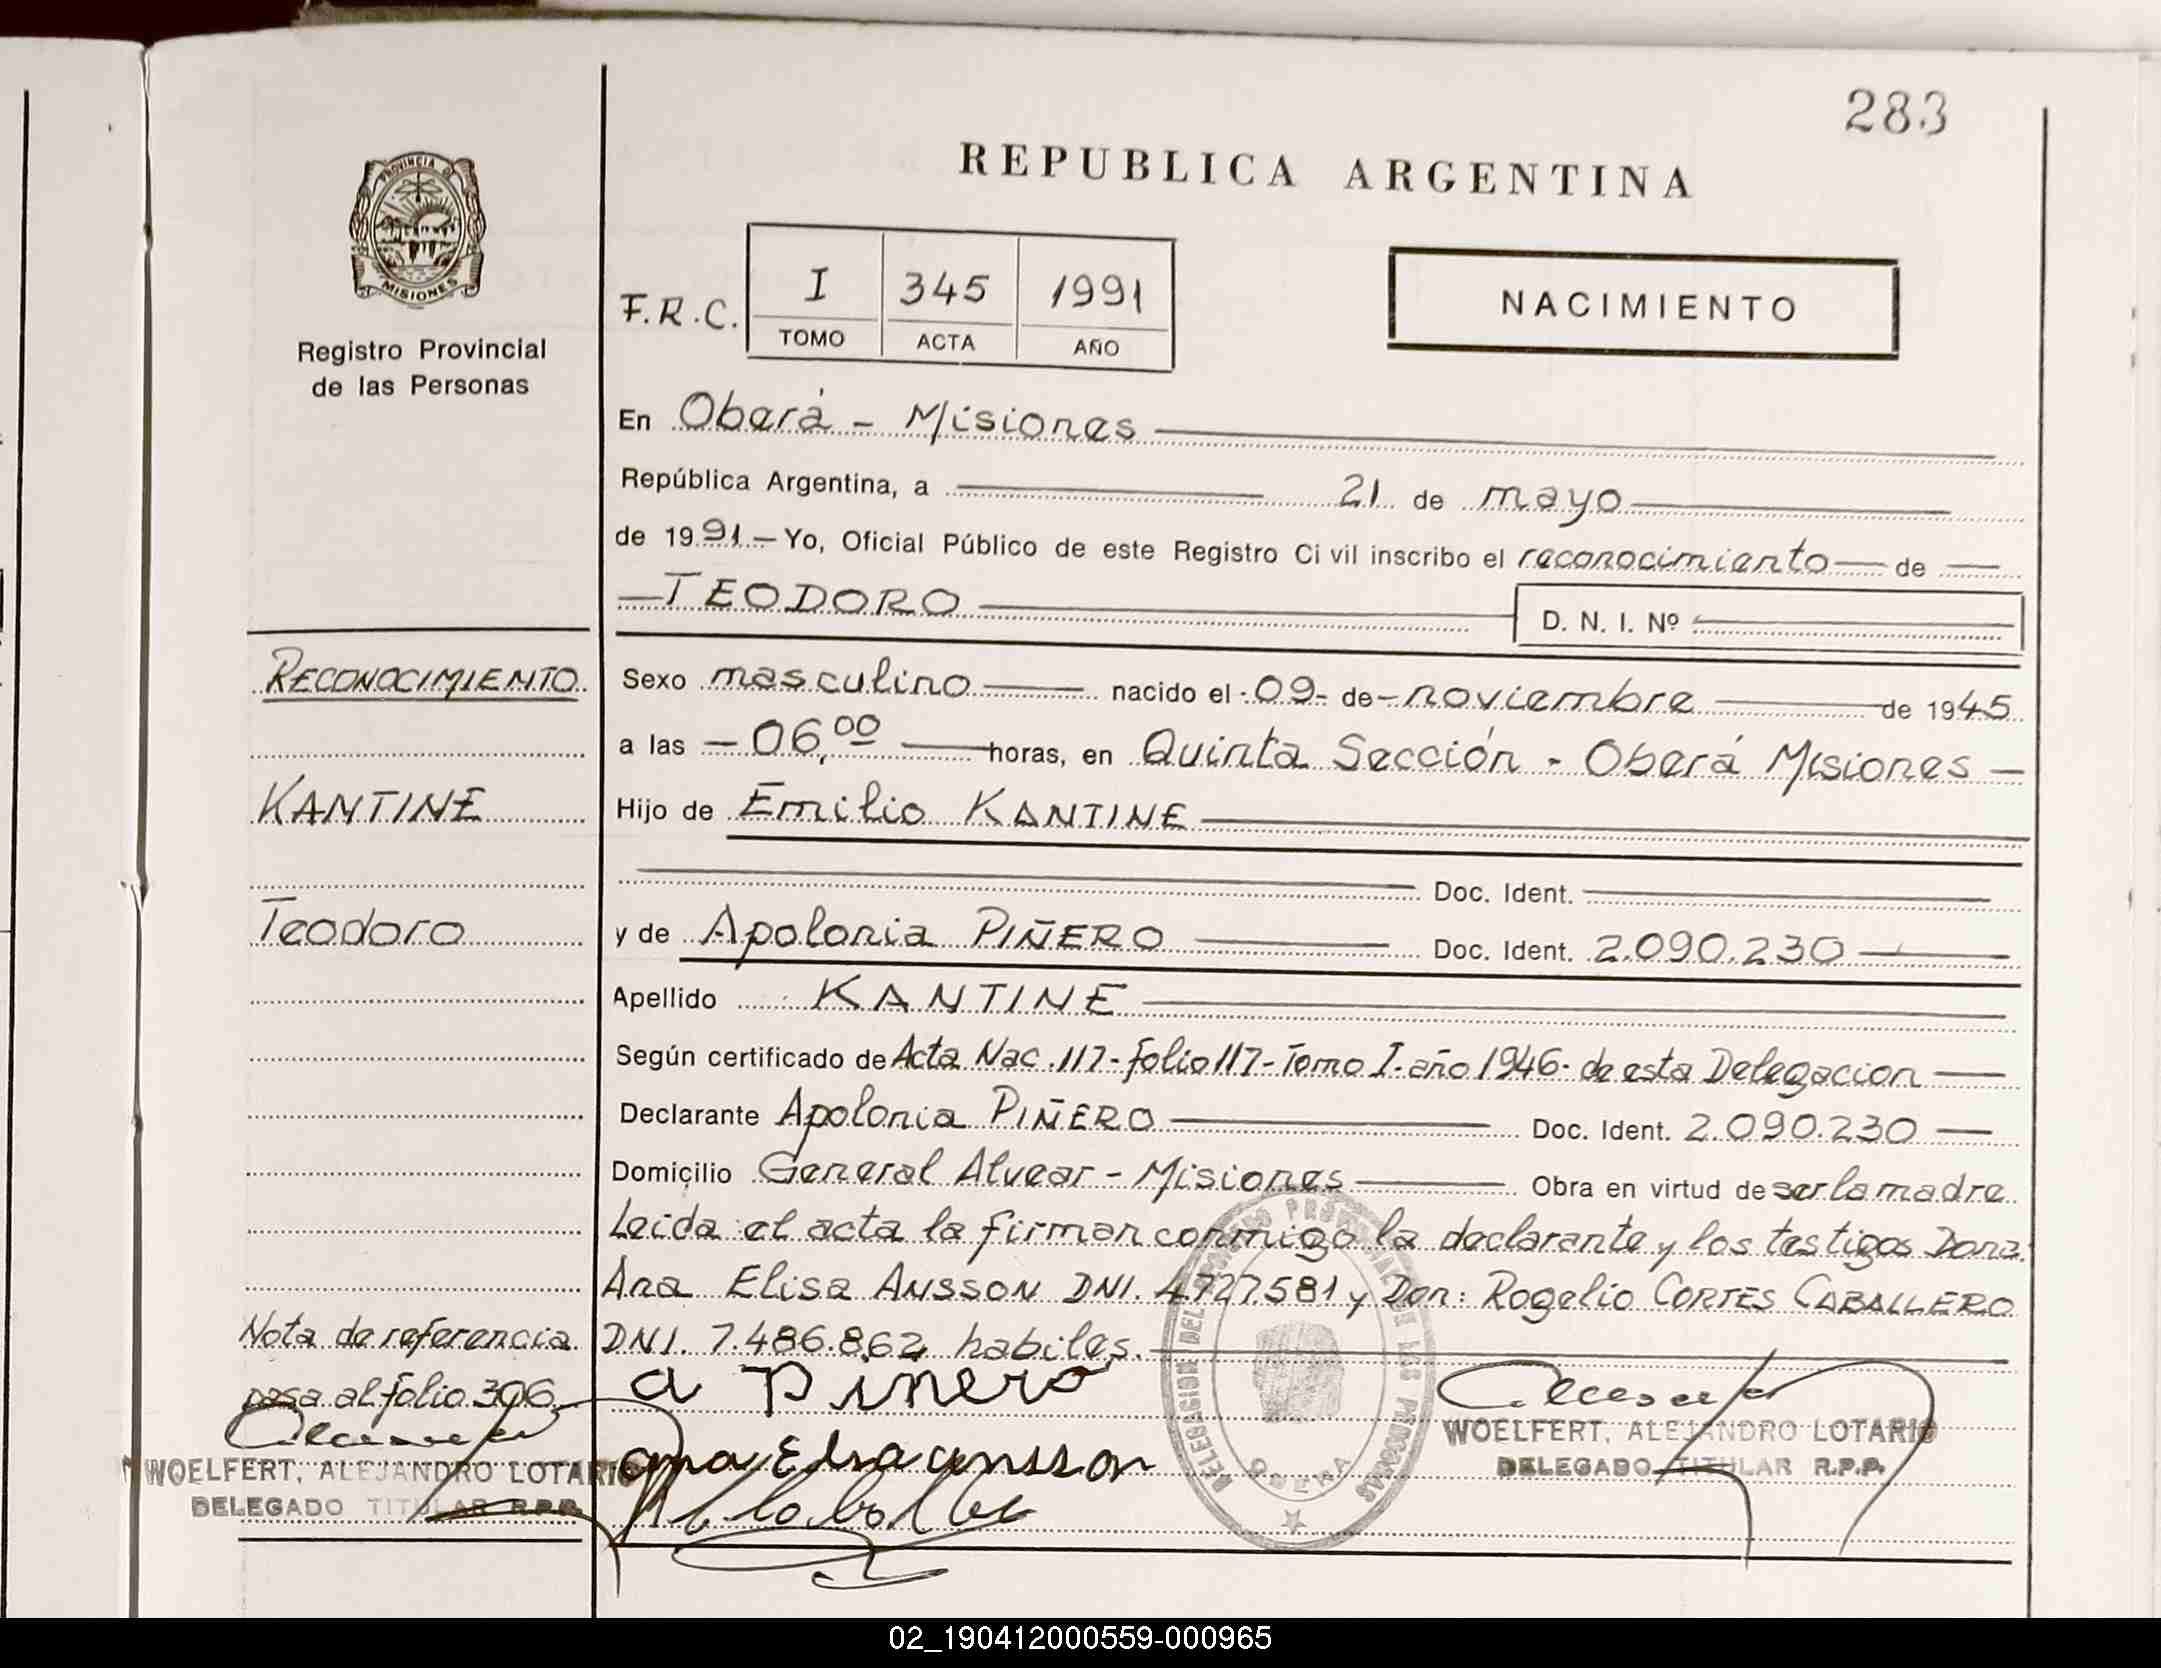 283
REPUBLICA ARGENTINA
PROVINCIA DE
MISIONES
Registro Provincial
de las Personas
F.R.C.
I 345 1991
TOMO ACTA AÑO
NACIMIENTO
En Oberá - Misiones
República Argentina, a 21 de mayo
de 1991 - Yo, Oficial Público de este Registro Civil inscribo el reconocimiento de
TEODORO
D. N. I. Nº
RECONOCIMIENTO
KANTINE
Teodoro
Sexo masculino nacido el 09 de noviembre de 1945
a las 06,00 horas, en Quinta Sección - Oberá Misiones
Hijo de Emilio KANTINE
Doc. Ident.
y de Apolonia PIÑERO Doc. Ident. 2.090.230
Apellido KANTINE
Según certificado de Acta Nac. 117- folio 117- Tomo I- año 1946- de esta Delegacion
Declarante Apolonia PIÑERO Doc. Ident. 2.090.230
Domicilio General Alvear - Misiones Obra en virtud de ser la madre
Leida el acta la firman conmigo la declarante y los testigos Dona
Ana Elisa ANSSON DNI. 4.727.581 y Don: Rogelio CORTES CABALLERO
DNI. 7.486.862 habiles.
Nota de referencia
pasa al folio 306
a Piñero
ana Elisa ansson
WOELFERT, ALEJANDRO LOTARIO
DELEGADO TITULAR R.P.P.
WOELFERT, ALEJANDRO LOTARIO
DELEGADO TITULAR R.P.P.
DELEGACION DEL REGISTRO PROVINCIAL DE LAS PERSONAS
OBERA
02_190412000559-000965